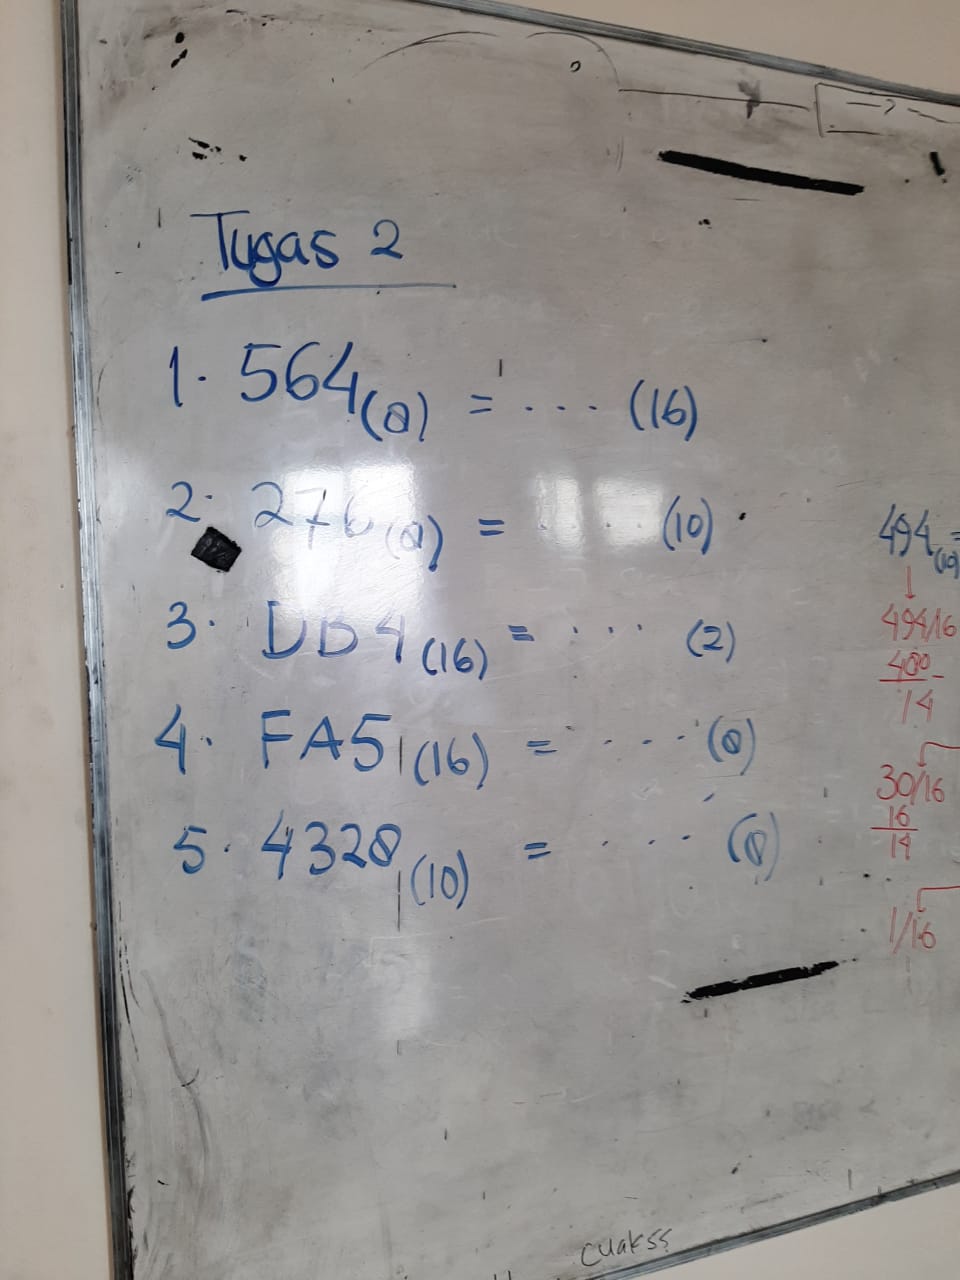 Tugas 2
1. 564(8) = ... (16)
2. 276(8) = .... (10)
3. DB4(16) = ... (2)
4. FA5(16) = .... (8)
5. 4328(10) = .... (8)
494(10)=
494/16
480 -
14
30/16
16
14
1/16
cuakss